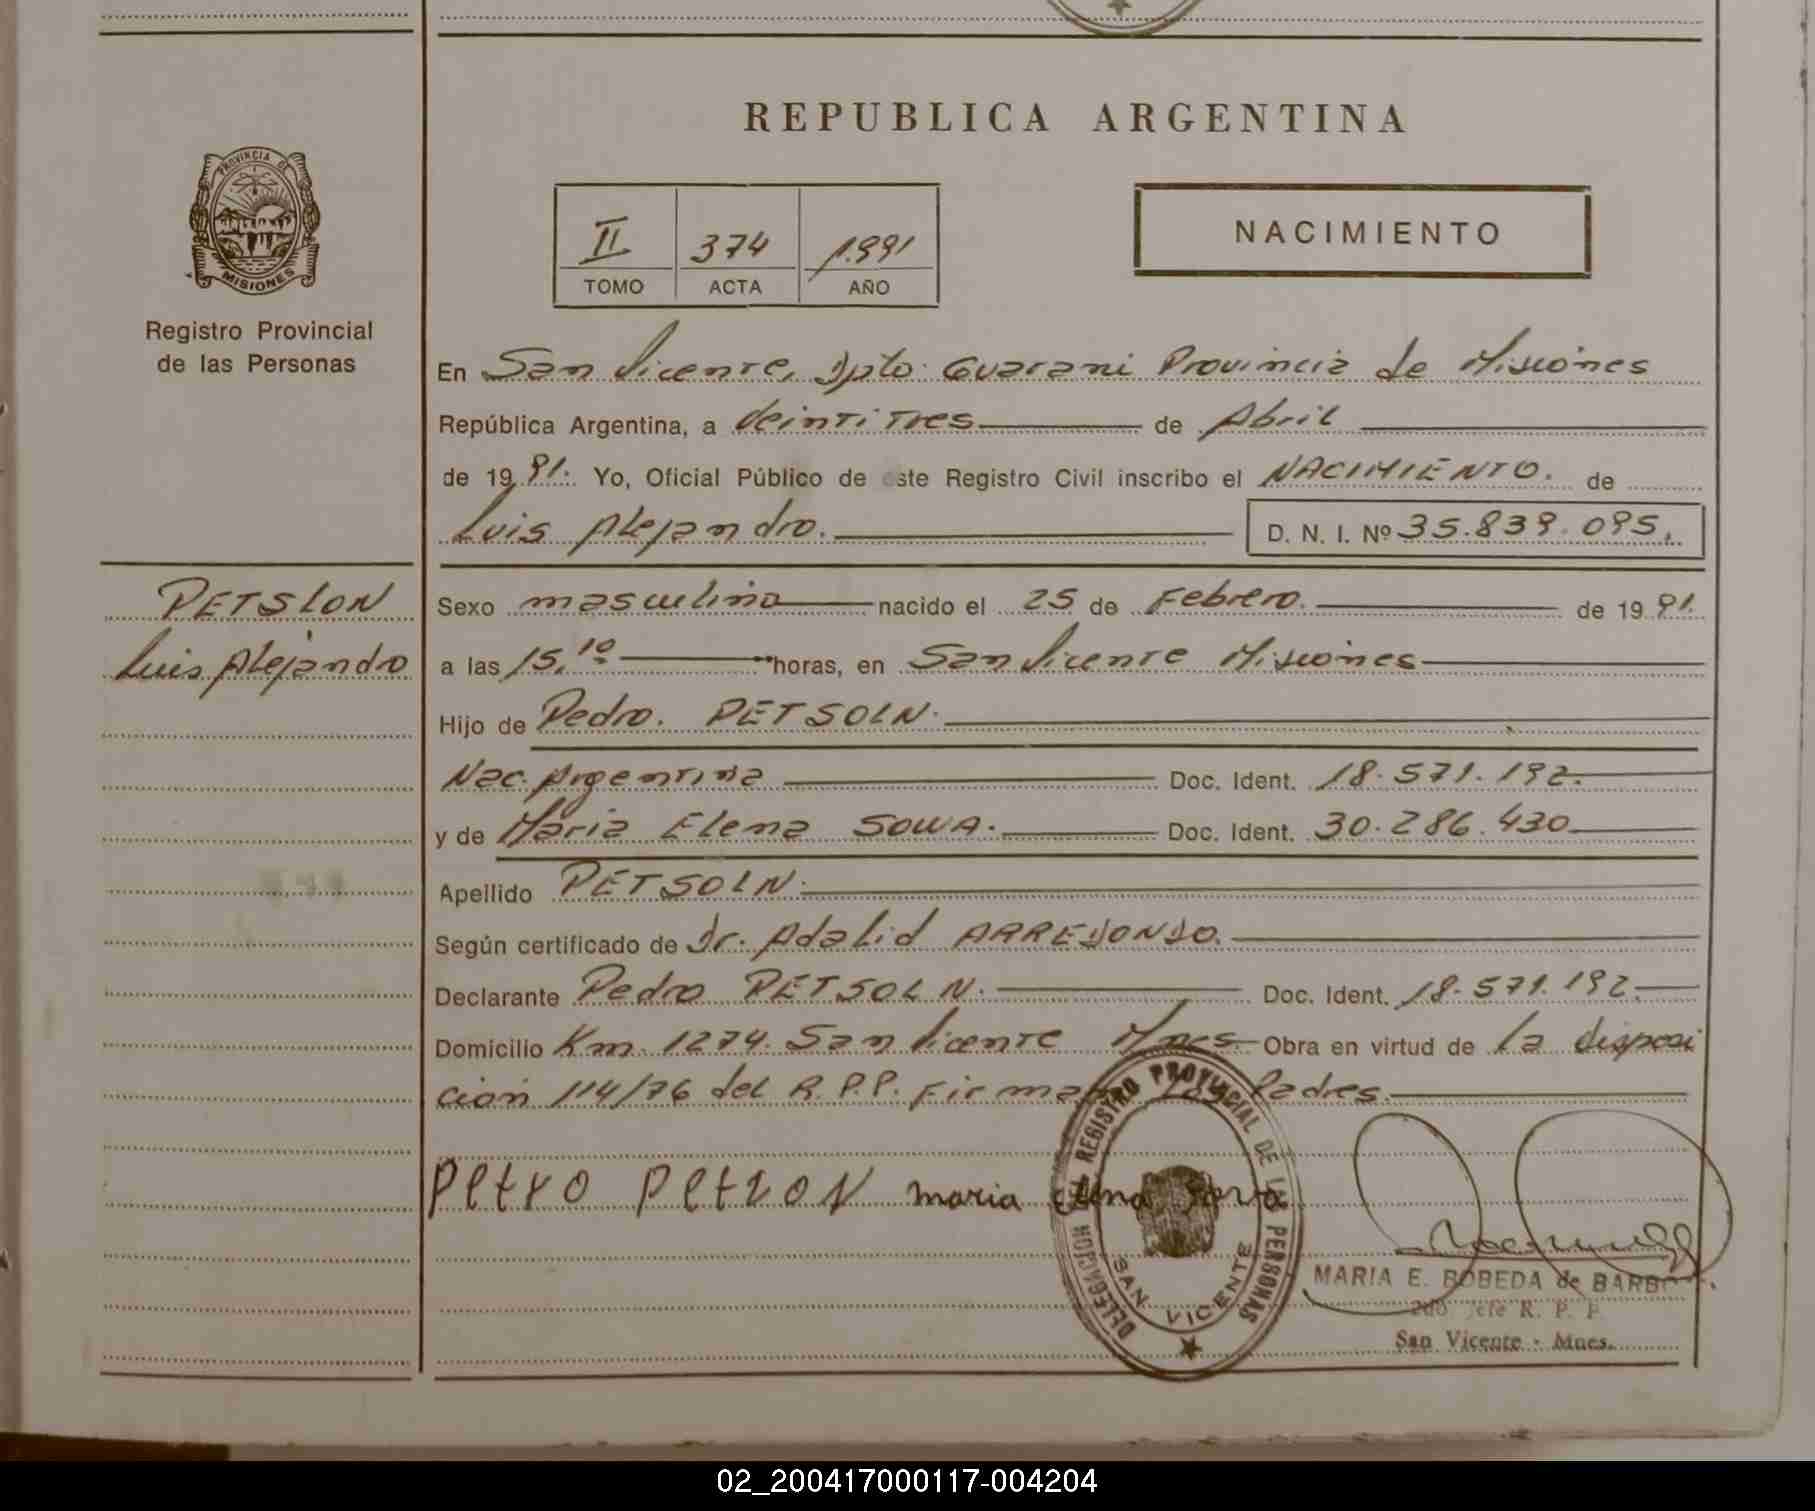 REPUBLICA ARGENTINA
PROVINCIA DE
MISIONES
Registro Provincial
de las Personas
II 374 1.991
TOMO ACTA AÑO
NACIMIENTO
En San Vicente, Dpto: Guarani Provincia de Misiones
República Argentina, a Veintitres de Abril
de 19 91. Yo, Oficial Público de este Registro Civil inscribo el NACIMIENTO. de
Luis Alejandro. D. N. I. Nº 35.839.095.
PETSLON
Luis Alejandro
Sexo masculino nacido el 25 de Febrero. de 19 91.
a las 15,10 horas, en San Vicente Misiones
Hijo de Pedro. PETSOLN.
Nac. Argentina Doc. Ident. 18.571.192.
y de Maria Elena SOWA. Doc. Ident. 30.286.430
Apellido PETSOLN.
Según certificado de Dr. Adalid ARREDONDO.
Declarante Pedro PETSOLN. Doc. Ident. 18.571.192.
Domicilio Km. 1274. San Vicente Mnes. Obra en virtud de la disposi
ción 114/76 del R.P.P. Firman los Padres.
maria elena
DELEGACION DEL REGISTRO PROVINCIAL DE LAS PERSONAS
SAN VICENTE
MARIA E. BOBEDA de
2do Jefe R. P. P.
San Vicente - Mnes.
02_200417000117-004204